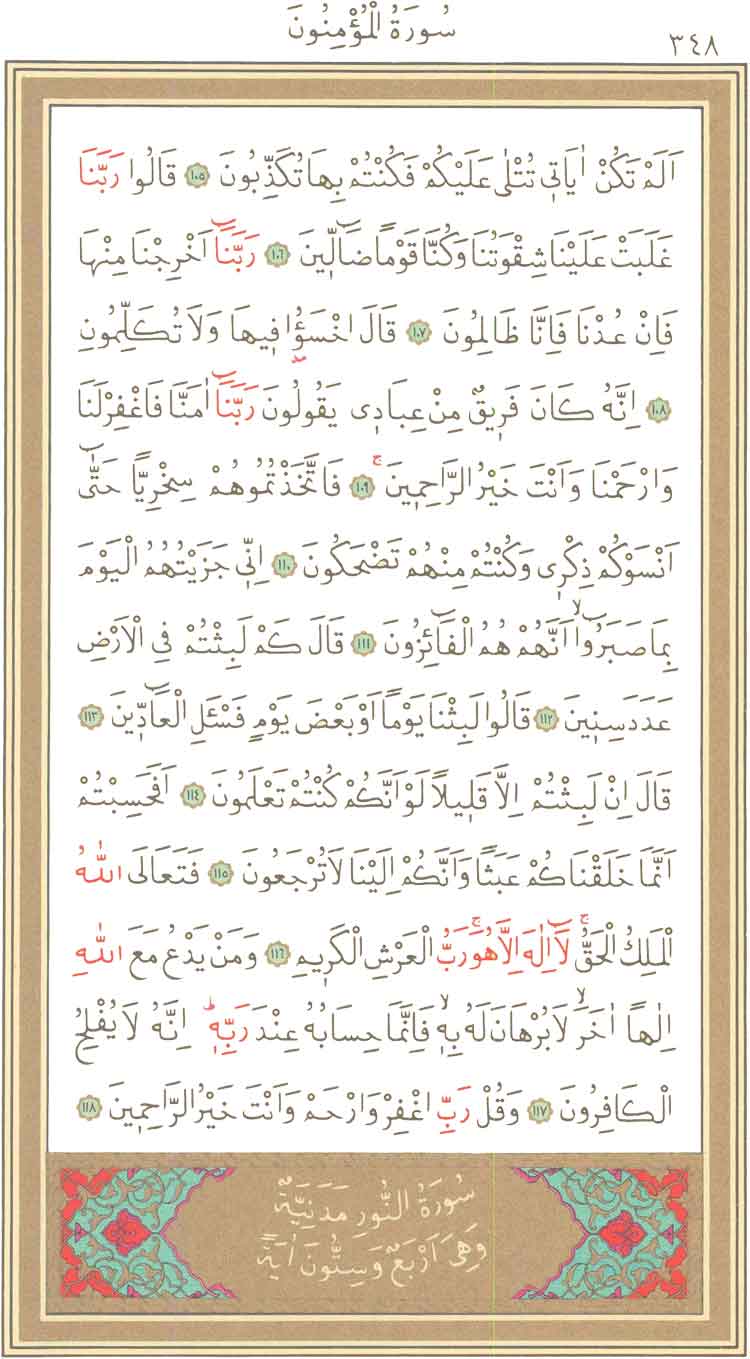 سُورَةُ الْمُؤْمِنُونَ
٣٤٨
اَلَمْ تَكُنْ اٰيَات۪ي تُتْلٰى عَلَيْكُمْ فَكُنْتُمْ بِهَا تُكَذِّبُونَ ١٠٥ قَالُوا رَبَّنَا
غَلَبَتْ عَلَيْنَا شِقْوَتُنَا وَكُنَّا قَوْمًا ضَٓالّ۪ينَ ١٠٦ رَبَّنَٓا اَخْرِجْنَا مِنْهَا
فَاِنْ عُدْنَا فَاِنَّا ظَالِمُونَ ١٠٧ قَالَ اخْسَؤُ۫ا ف۪يهَا وَلَا تُكَلِّمُونِ
١٠٨ اِنَّهُ كَانَ فَر۪يقٌ مِنْ عِبَاد۪ي يَقُولُونَ رَبَّنَٓا اٰمَنَّا فَاغْفِرْ لَنَا
وَارْحَمْنَا وَاَنْتَ خَيْرُ الرَّاحِم۪ينَۚ ١٠٩ فَاتَّخَذْتُمُوهُمْ سِخْرِيًّا حَتّٰٓى
اَنْسَوْكُمْ ذِكْر۪ي وَكُنْتُمْ مِنْهُمْ تَضْحَكُونَ ١١٠ اِنّ۪ي جَزَيْتُهُمُ الْيَوْمَ
بِمَا صَبَرُٓواۙ اَنَّهُمْ هُمُ الْفَٓائِزُونَ ١١١ قَالَ كَمْ لَبِثْتُمْ فِي الْاَرْضِ
عَدَدَ سِن۪ينَ ١١٢ قَالُوا لَبِثْنَا يَوْمًا اَوْ بَعْضَ يَوْمٍ فَسْـَٔلِ الْعَٓادّ۪ينَ ١١٣
قَالَ اِنْ لَبِثْتُمْ اِلَّا قَل۪يلًا لَوْ اَنَّكُمْ كُنْتُمْ تَعْلَمُونَ ١١٤ اَفَحَسِبْتُمْ
اَنَّمَا خَلَقْنَاكُمْ عَبَثًا وَاَنَّكُمْ اِلَيْنَا لَا تُرْجَعُونَ ١١٥ فَتَعَالَى اللّٰهُ
الْمَلِكُ الْحَقُّۚ لَٓا اِلٰهَ اِلَّا هُوَۚ رَبُّ الْعَرْشِ الْكَر۪يمِ ١١٦ وَمَنْ يَدْعُ مَعَ اللّٰهِ
اِلٰهًا اٰخَرَۙ لَا بُرْهَانَ لَهُ بِه۪ۙ فَاِنَّمَا حِسَابُهُ عِنْدَ رَبِّه۪ۜ اِنَّهُ لَا يُفْلِحُ
الْكَافِرُونَ ١١٧ وَقُلْ رَبِّ اغْفِرْ وَارْحَمْ وَاَنْتَ خَيْرُ الرَّاحِم۪ينَ ١١٨
سُورَةُ النُّورِ مَدَنِيَّةٌ
وَهِيَ اَرْبَعٌ وَسِتُّونَ اٰيَةً